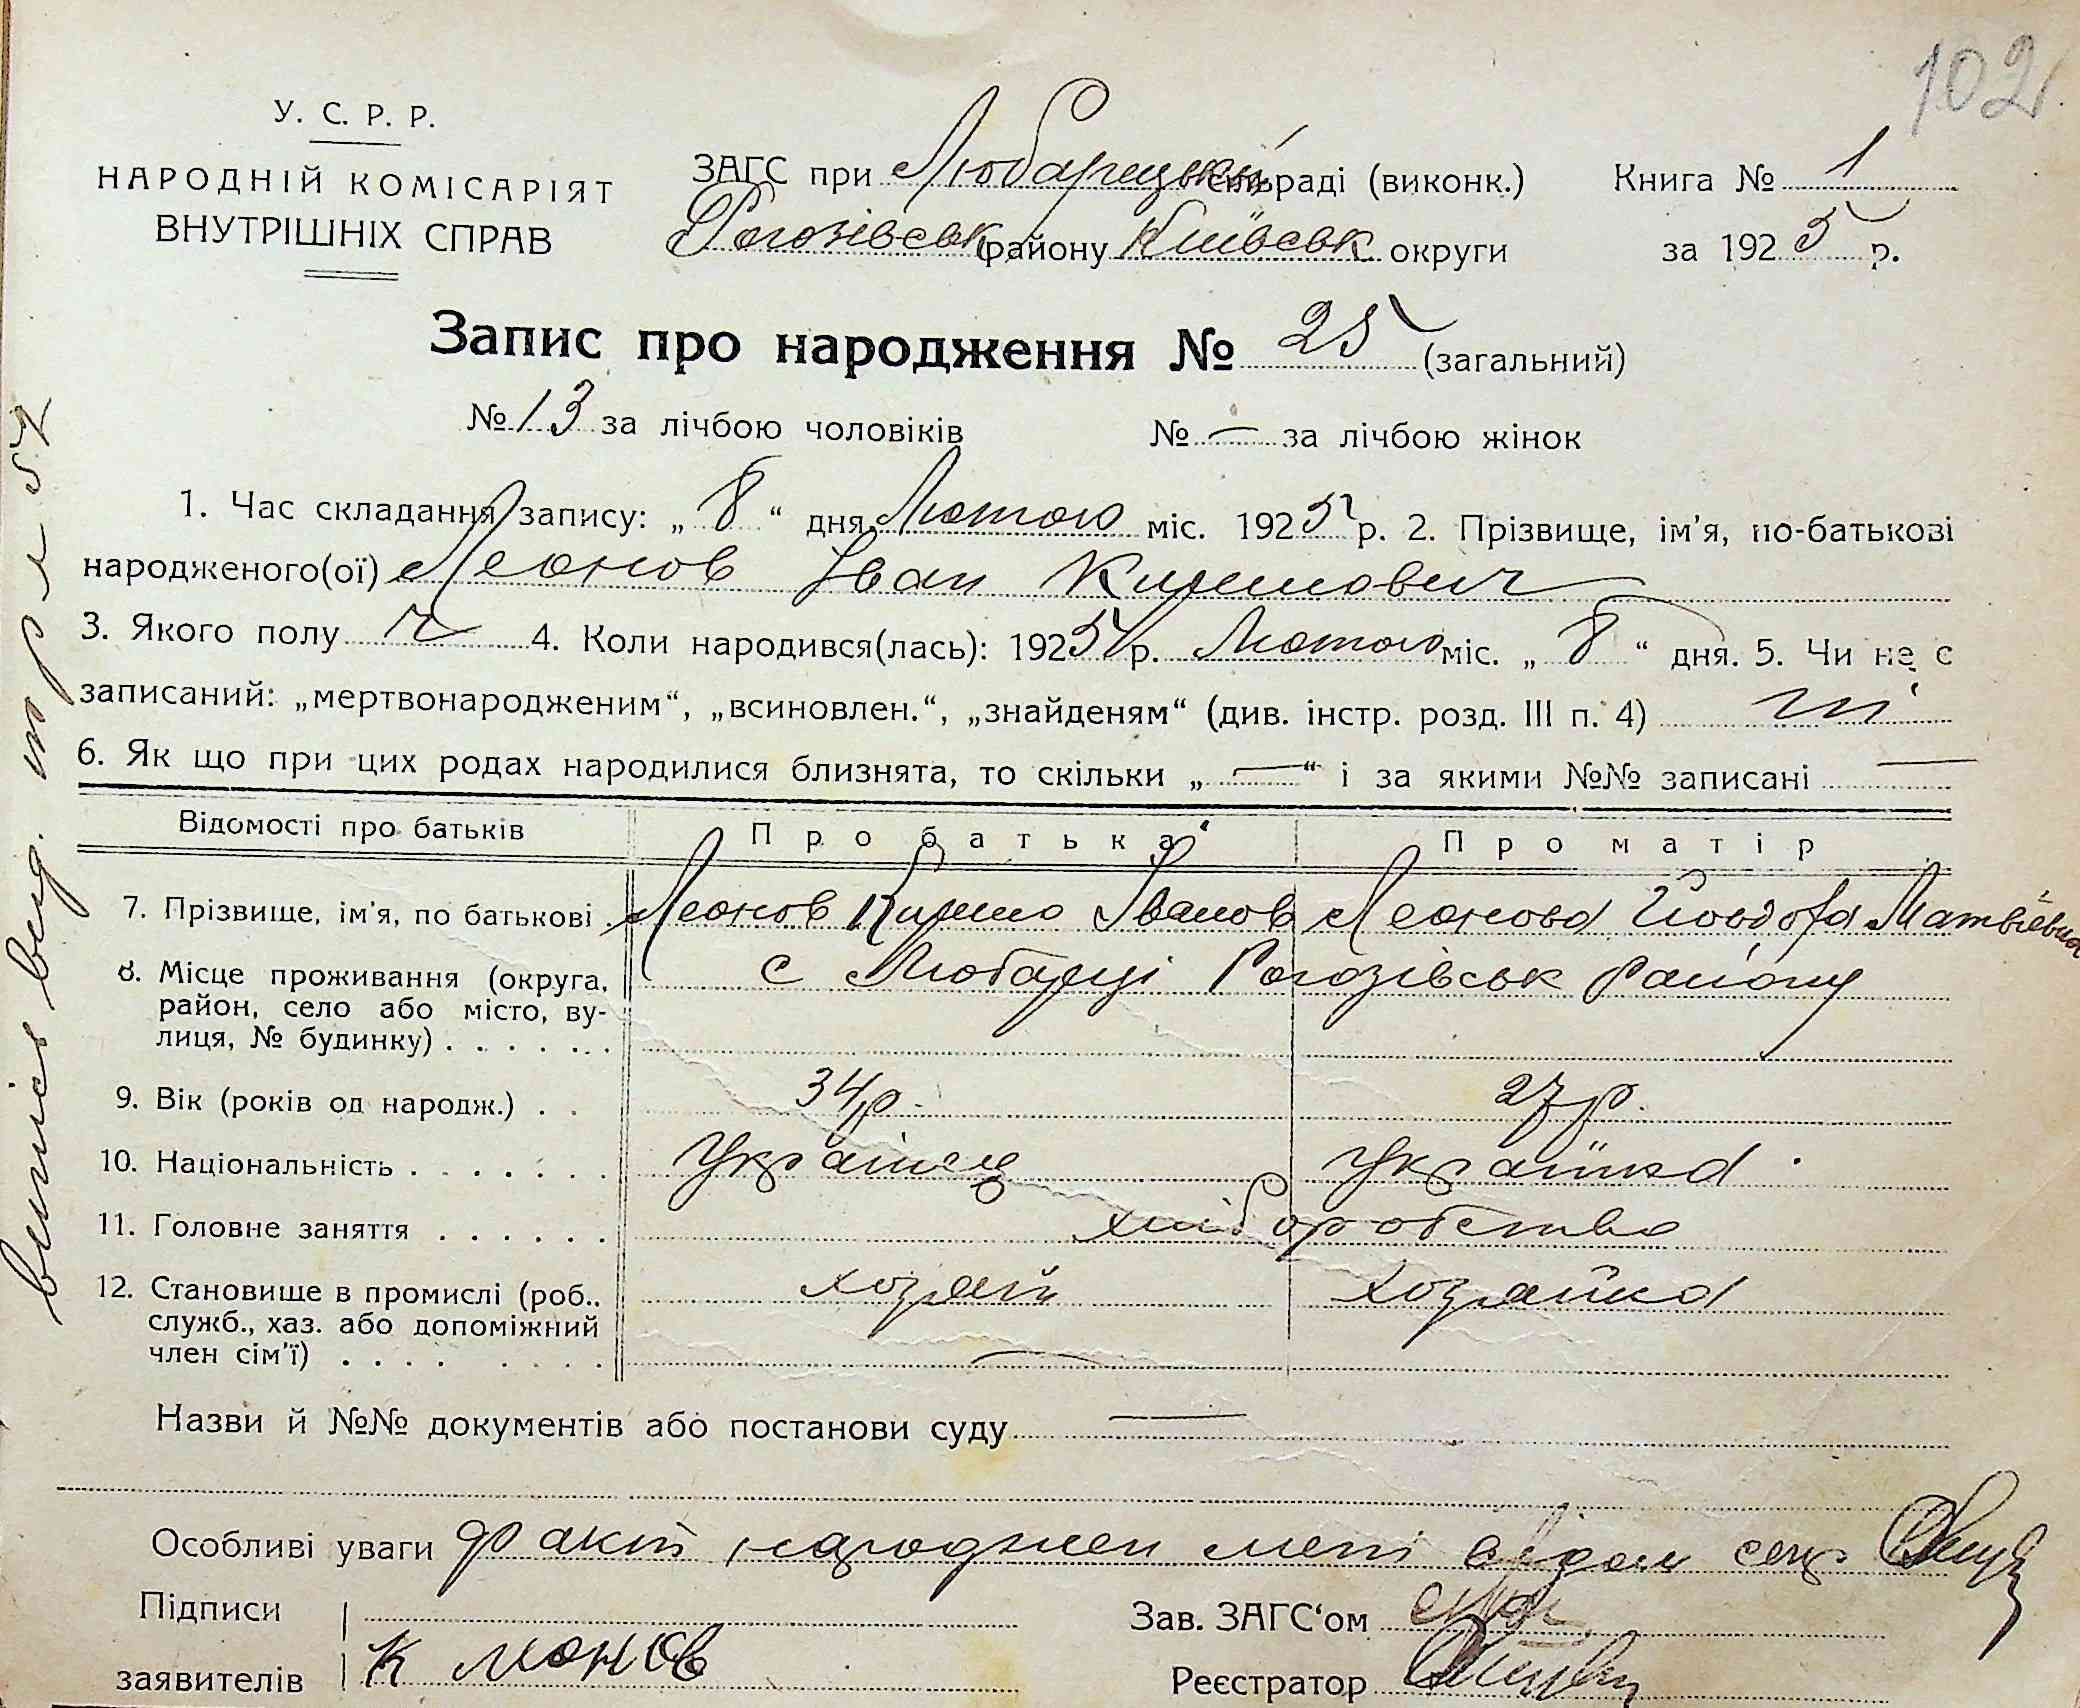 102
У. С. Р. Р.
НАРОДНІЙ КОМІСАРІЯТ
ВНУТРІШНІХ СПРАВ
ЗАГС при Любарецькій сільраді (виконк.)
Рогозівськ району Київськ округи
Книга № 1
за 1925 р.
Запис про народження № 25 (загальний)
№ 13 за лічбою чоловіків № — за лічбою жінок
1. Час складання запису: „ 8 “ дня Лютого міс. 1925 р. 2. Прізвище, ім'я, по-батькові
народженого(ої) Леонов Іван Кирилович
3. Якого полу ч 4. Коли народився(лась): 1925 р. Лютого міс. „ 8 “ дня. 5. Чи не є
записаний: „мертвонародженим“, „всиновлен.“, „знайденям“ (див. інстр. розд. III п. 4) ні
6. Як що при цих родах народилися близнята, то скільки „ — “ і за якими №№ записані —
Відомості про батьків Про батька Про матір
7. Прізвище, ім'я, по батькові . Леонов Кирило Іванов Леонова Матвієвна
8. Місце проживання (округа, с Любарці Рогозівськ району
район, село або місто, ву-
лиця, № будинку) . . . . . .
9. Вік (років од народж.) . . 34 р. 27 р.
10. Національність . . . . . . . Українец Українка
11. Головне заняття . . . . . . хліборобство
12. Становище в промислі (роб., хозяїн хозяйка
служб., хаз. або допоміжний
член сім'ї) . . . . . . . . —
Назви й №№ документів або постанови суду —
Особливі уваги Факт народжен мені відом
Підписи
заявителів К Леонов
Зав. ЗАГС‘ом
Реєстратор
випись вид.